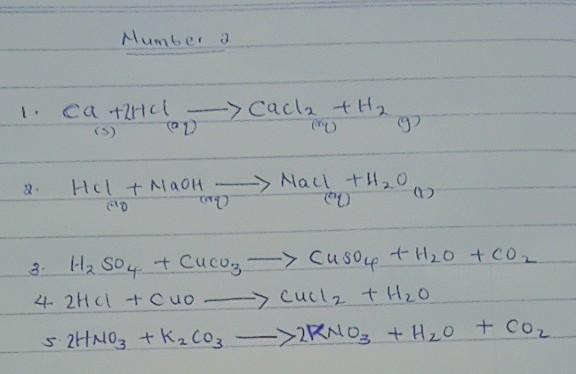 Number 2
1. Ca + 2HCl —> CaCl2 + H2
(s) (aq) (aq) (g)
2. HCl + NaOH —> NaCl + H2O
(aq) (aq) (aq) (l)
3. H2SO4 + CuCO3 —> CuSO4 + H2O + CO2
4. 2HCl + CuO —> CuCl2 + H2O
5. 2HNO3 + K2CO3 —> 2KNO3 + H2O + CO2